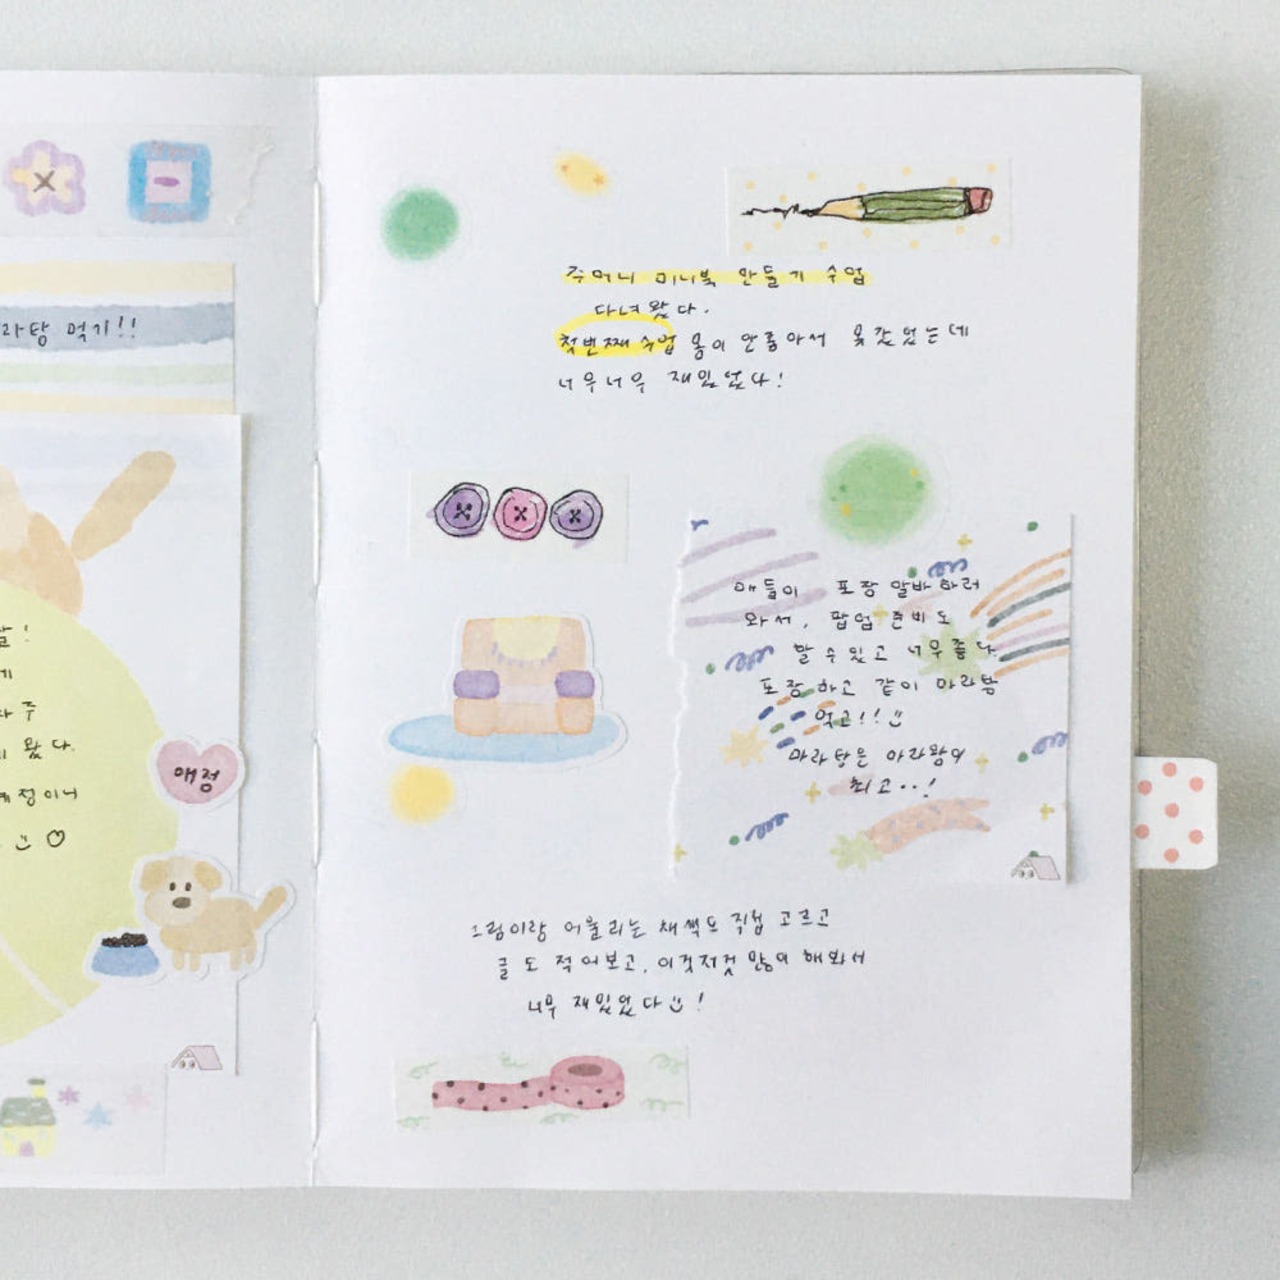 라탕 먹기!!
게
주
왔다.
정이니
애정
주머니 미니북 만들기 수업
다녀왔다.
첫번째 수업 몸이 안좋아서 못갔었는데
너무너무 재밌었다!
애들이 포장 알바하러
와서, 팝업 준비도
할 수 있고 너무 좋다.
포장하고 같이 마라탕
먹고!!
마라탕은
최고..!
그림이랑 어울리는 채색도 직접 고르고
글도 적어보고, 이것저것 많이 해봐서
너무 재밌었다!